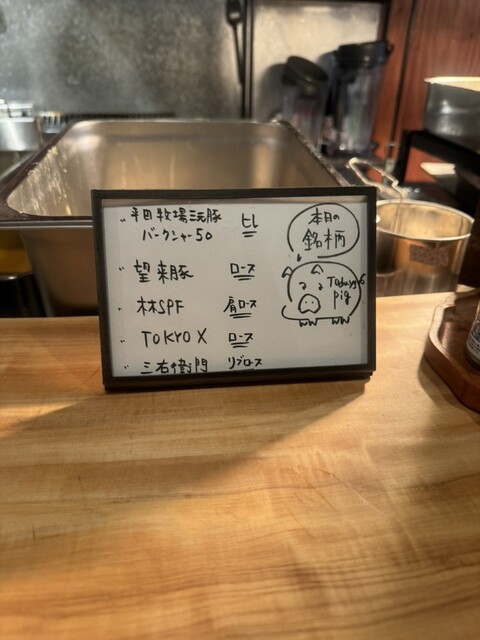 本日の
銘柄
平田牧場三元豚 ヒレ
バークシャー50
望来豚 ロース
林SPF 肩ロース
TOKYO X ロース
三右衛門 リブロース
Today's
pig